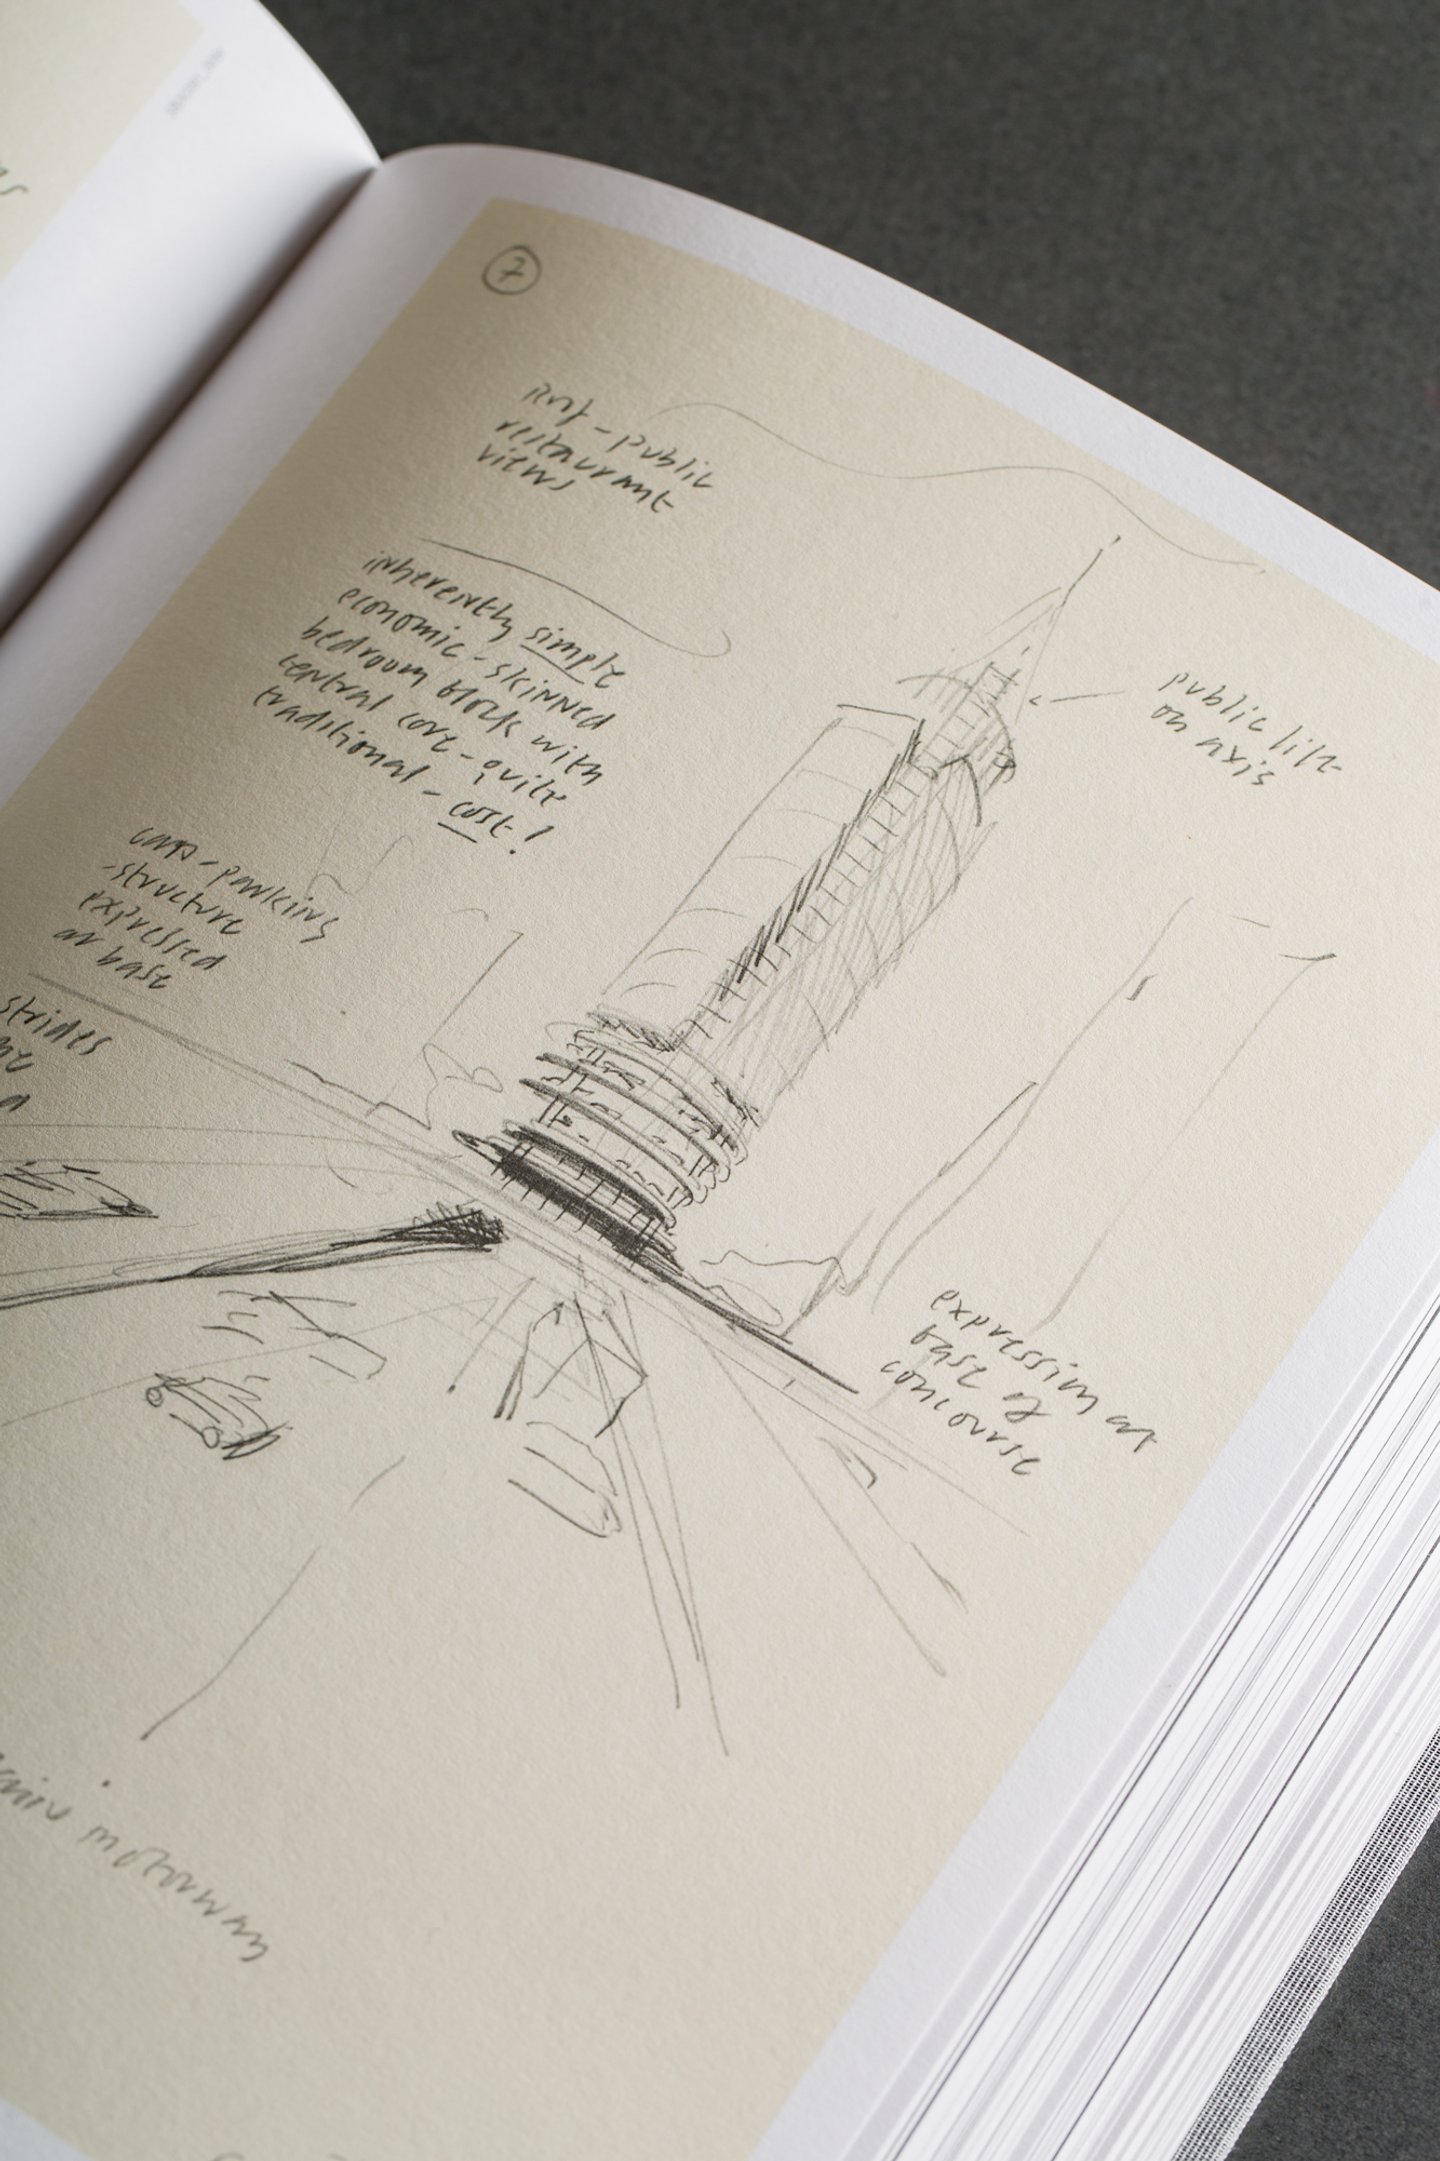 7
Roof - public
restaurant
views
inherently simple
economic - skinned
bedroom block with
central core - quite
traditional - cost!
cars - parking
- structure
expressed
at base
strides
a
public lift
on axis
expression at
base of
concourse
motorway